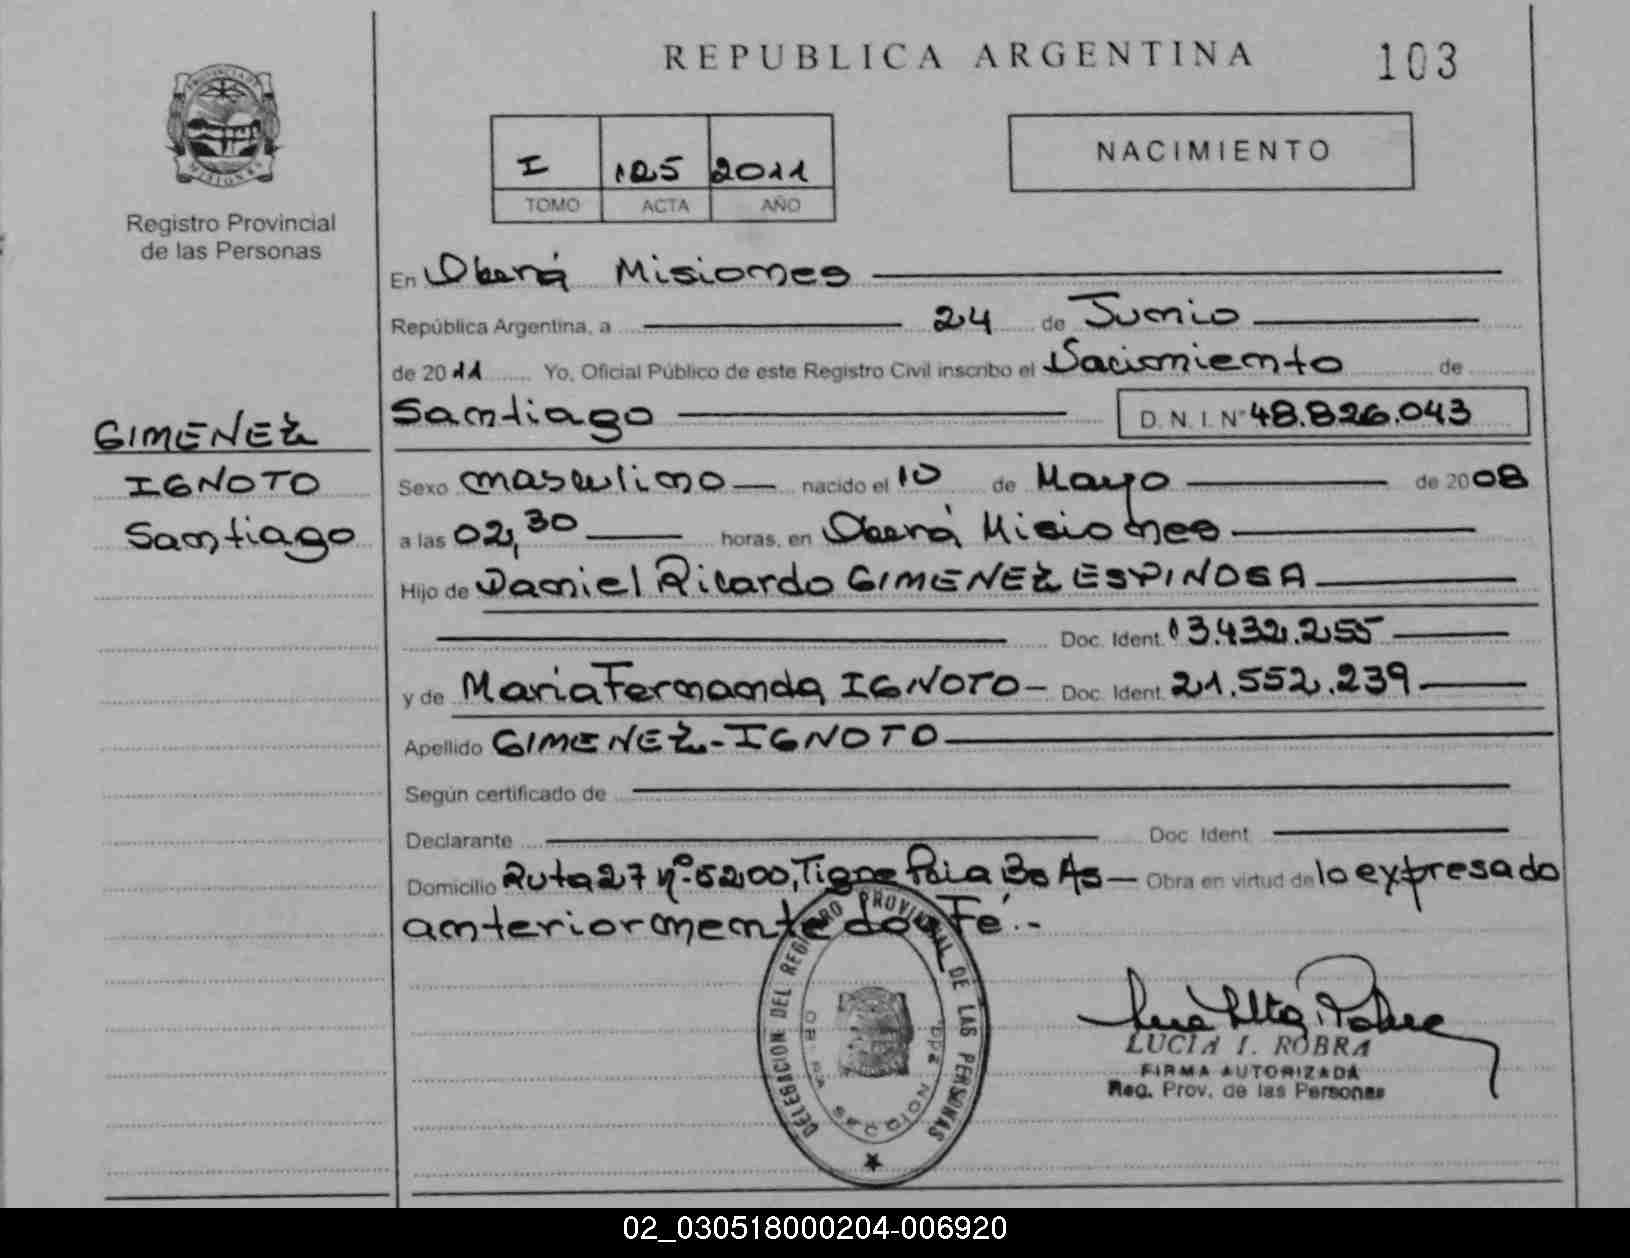 REPUBLICA ARGENTINA 103
PROVINCIA DE MISIONES
Registro Provincial
de las Personas
I 125 2011
TOMO ACTA AÑO
NACIMIENTO
En Oberá Misiones
República Argentina, a 24 de Junio
de 2011 Yo, Oficial Público de este Registro Civil inscribo el Nacimiento de
Santiago D.N.I. N° 48.826.043
GIMENEZ
IGNOTO
Santiago
Sexo masculino nacido el 10 de Mayo de 2008
a las 02,30 horas, en Oberá Misiones
Hijo de Daniel Ricardo GIMENEZ ESPINOSA
Doc. Ident. 13.432.255
y de Maria Fernanda IGNOTO - Doc. Ident. 21.552.239
Apellido GIMENEZ - IGNOTO
Según certificado de
Declarante Doc. Ident.
Domicilio Ruta 27 nº 5200, Tigre Pcia Bs As - Obra en virtud de lo expresado
anteriormente doy Fé.-
DELEGACION DEL REGISTRO PROVINCIAL DE LAS PERSONAS
LUCIA I. ROBRA
FIRMA AUTORIZADA
Reg. Prov. de las Personas
02_030518000204-006920